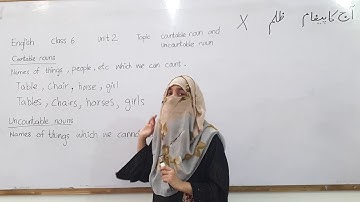 آج کا پیغام ظلم X
English class 6 Unit 2 Topic Countable noun and
Uncountable noun
Countable nouns
Names of things, people, etc which we can count.
Table, chair, horse, girl
Tables, chairs, horses, girls
Uncountable nouns
Names of things which we cannot